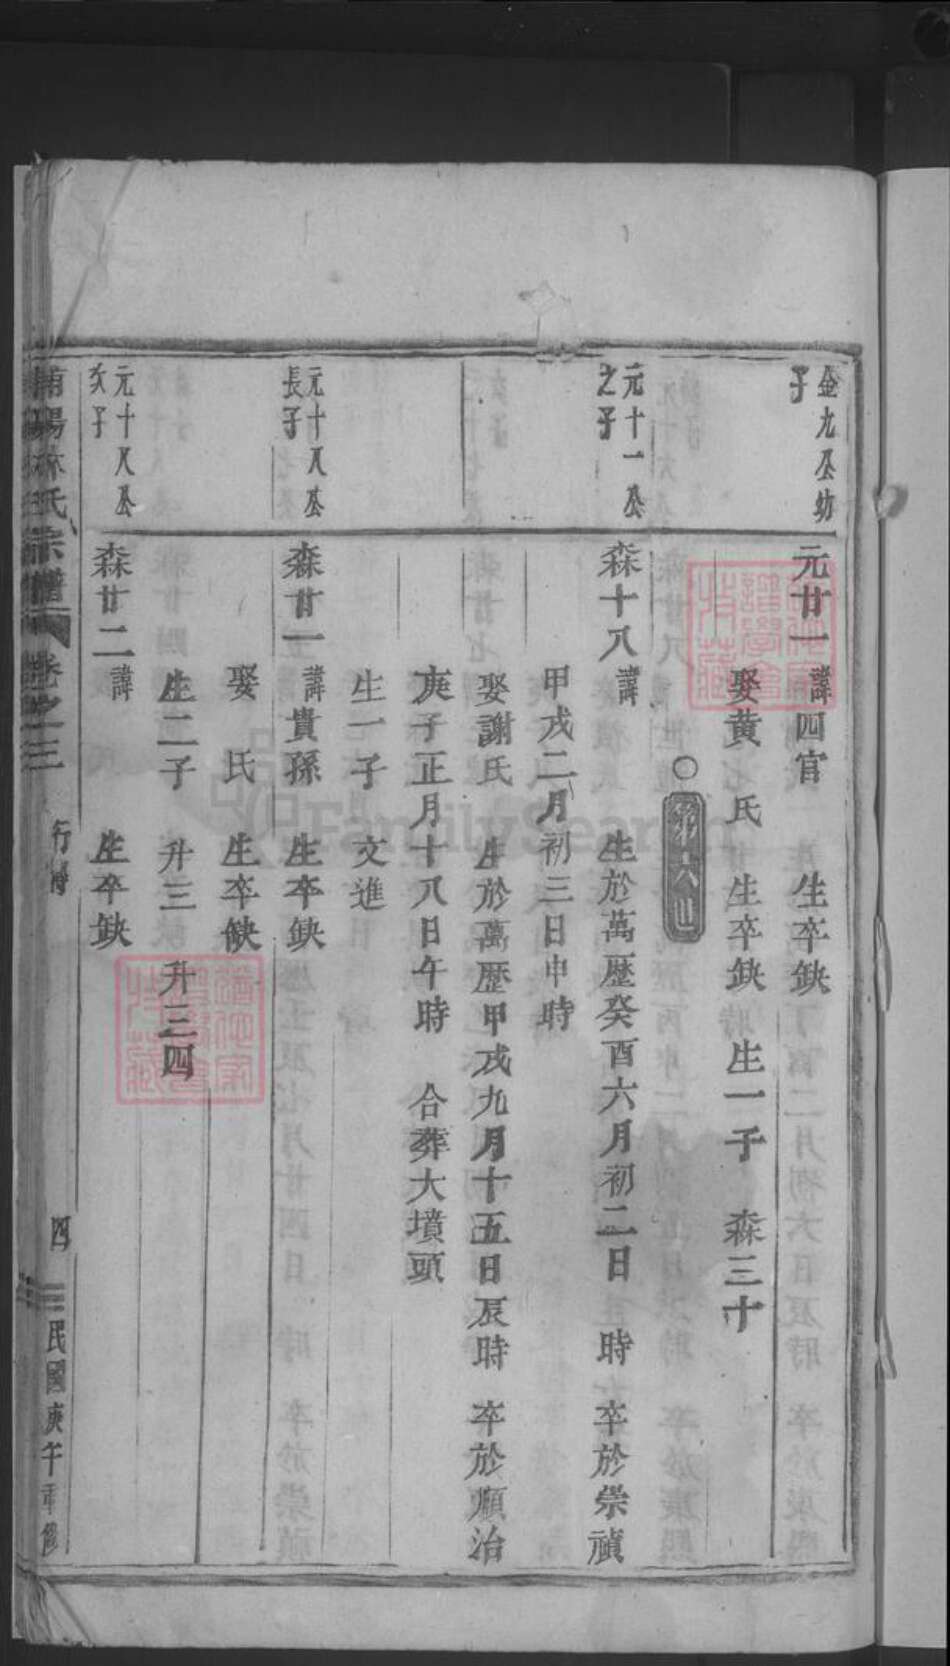 金九公幼
子
元廿一 諱四官 生卒缺
娶黄 氏 生卒缺 生一子 森三十
○第六世
元十一公
之子
森十八 諱 生於萬歷癸酉六月初二日 時 卒於崇禎
甲戌二月初三日申時
娶謝氏 生於萬歷甲戌九月十五日辰時 卒於順治
庚子正月十八日午時 合葬大墳頭
生一子 文進
元十八公
長子
森廿一 諱貴孫 生卒缺
娶 氏 生卒缺
生二子 升三 升三四
元十八公
次子
森廿二 諱 生卒缺
南陽 氏宗譜 卷之三 行傳 四 民國庚午重修
FamilySearch